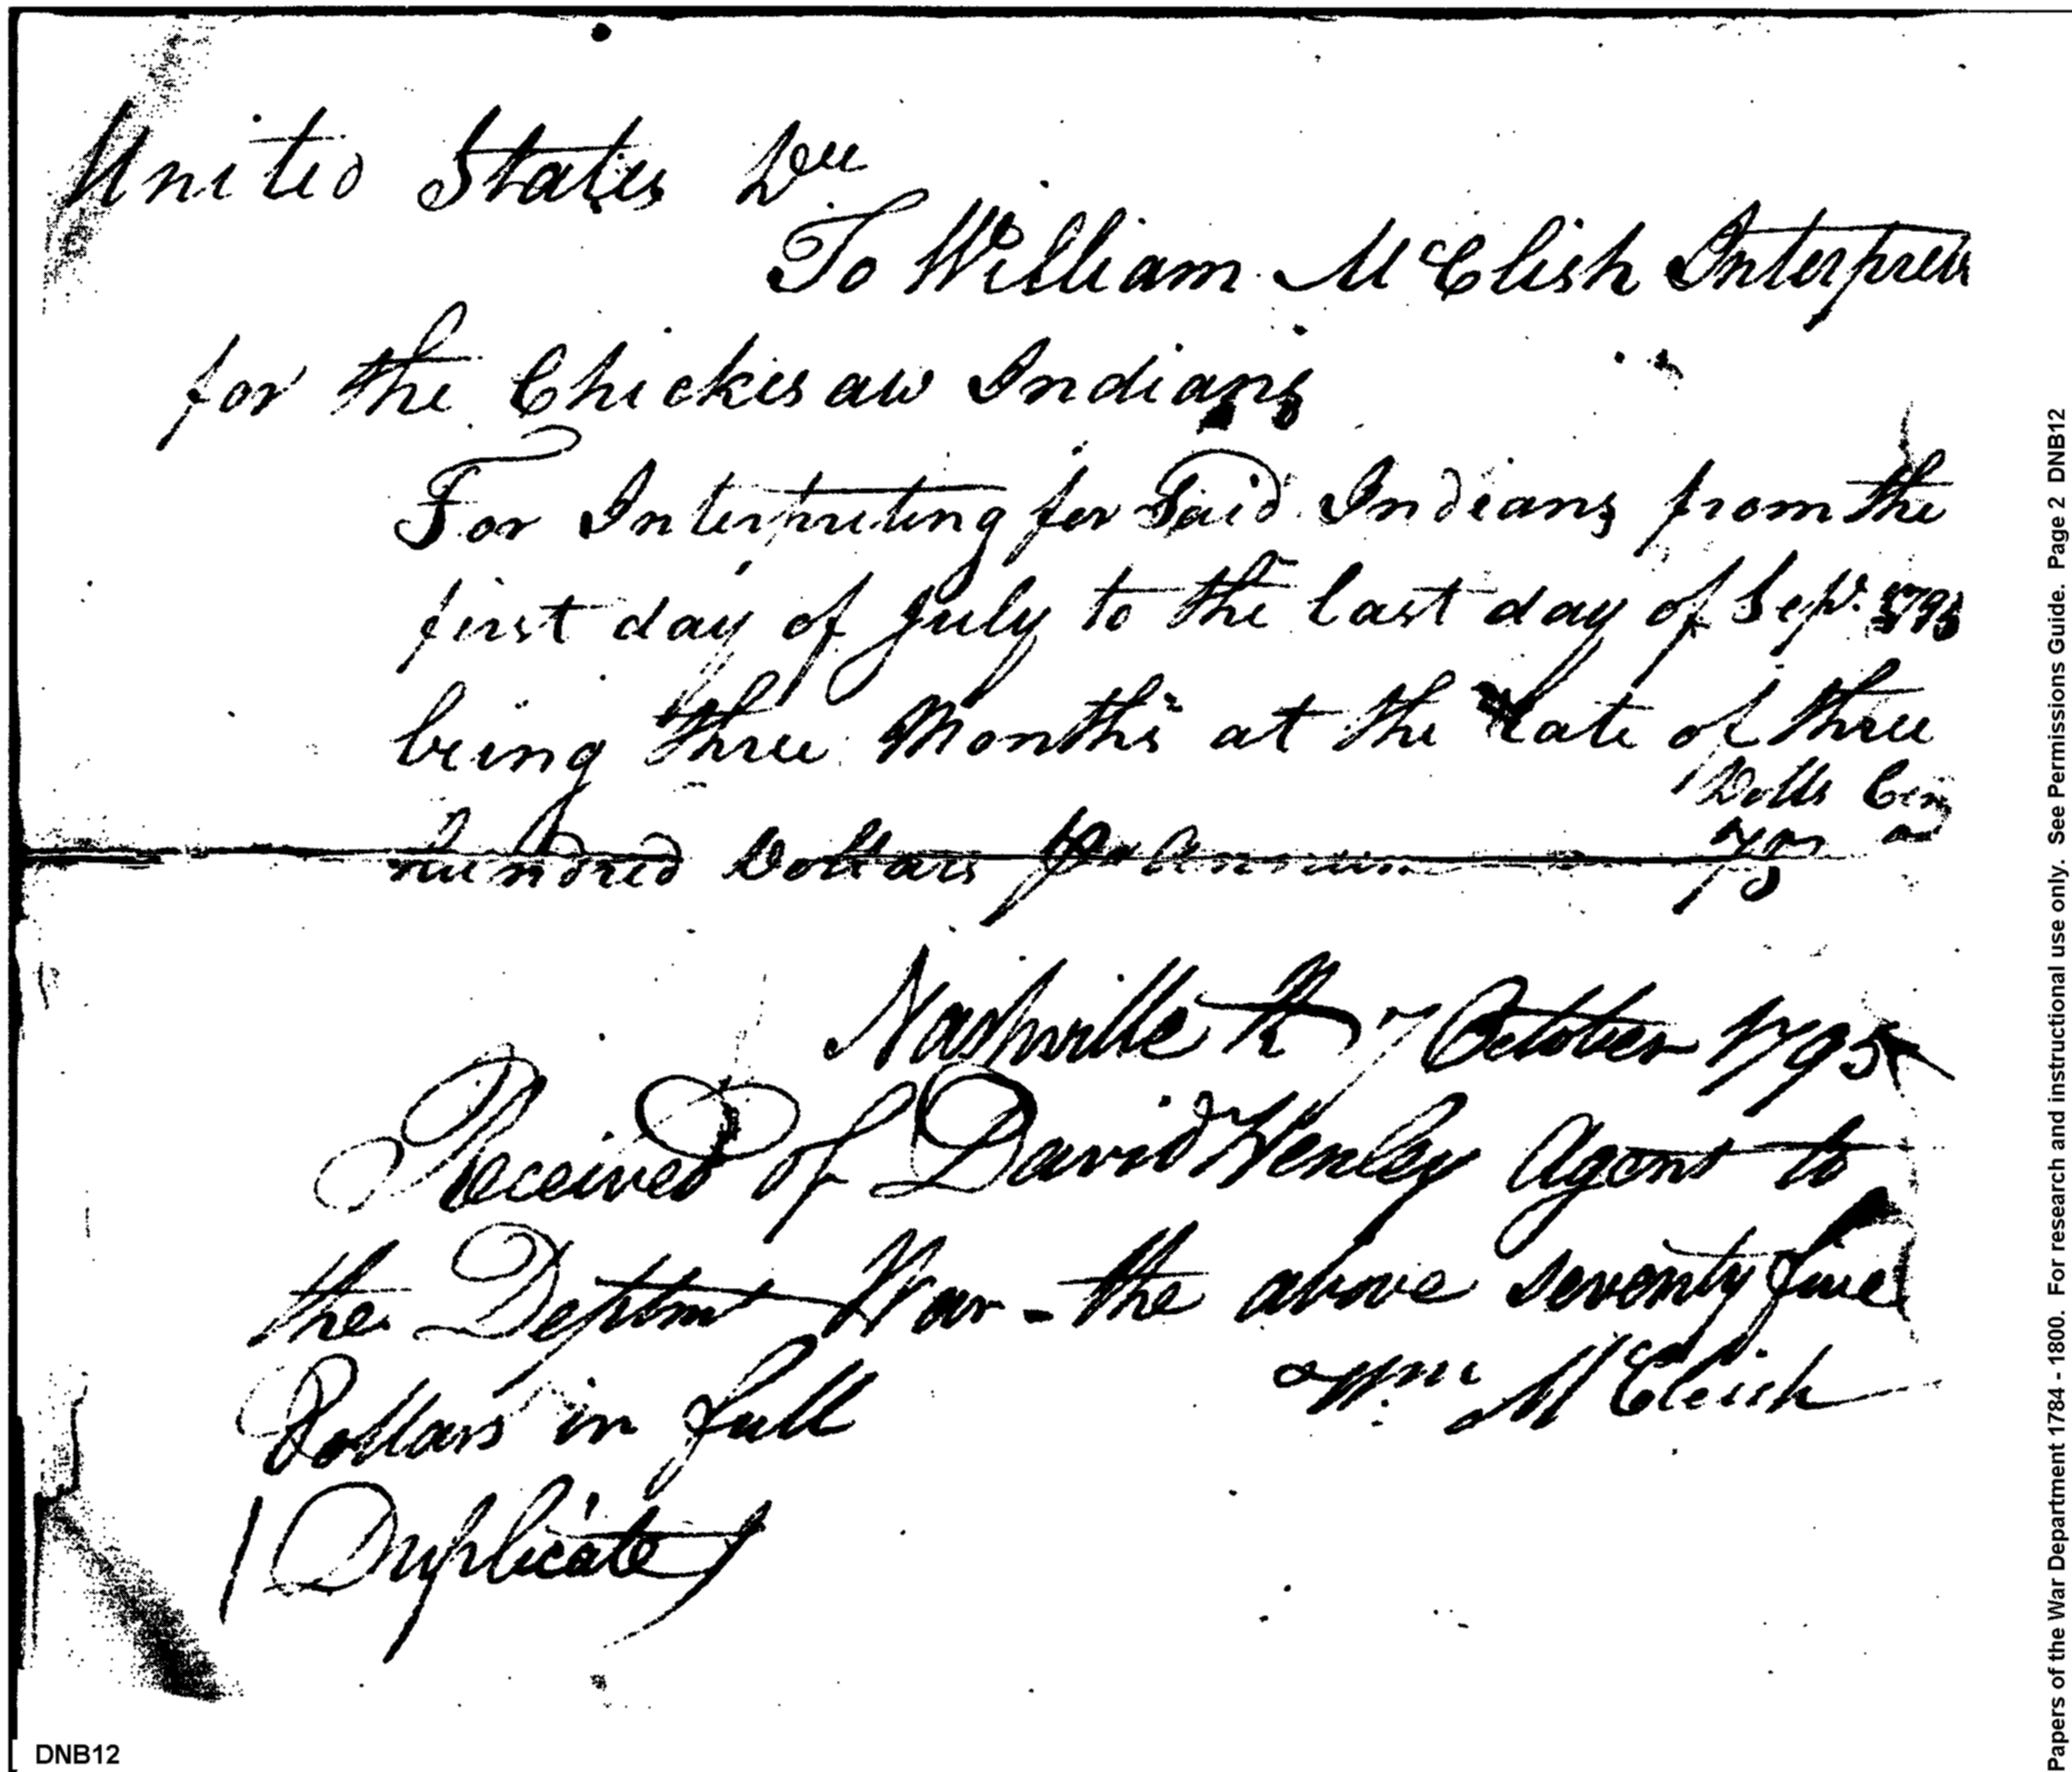 United States Dr
To William McClish Interpreter
for the Chickesaw Indians
For Interpreting for Said Indians from the
first day of July to the last day of Sept. 1795
being three Months at the rate of three
Dolls Cens
hundred Dollars Pr Annum 75
Nashville 7 October 1795
Received of David Henley Agent to
the Deptmt War - the above seventy five
Dollars in full Wm McClish
(Duplicate)
DNB12
Papers of the War Department 1784 - 1800. For research and instructional use only. See Permissions Guide. Page 2 DNB12